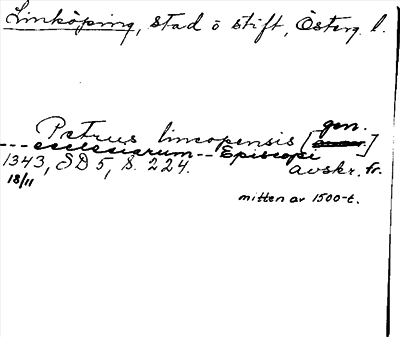 Linköping, stad o stift, Österg. l.
gen.
Petrus lincopensis [ ]
--- ecclesiarum -- Episcopi
1343, SD 5, s. 224. avskr. fr.
18/11
mitten av 1500-t.